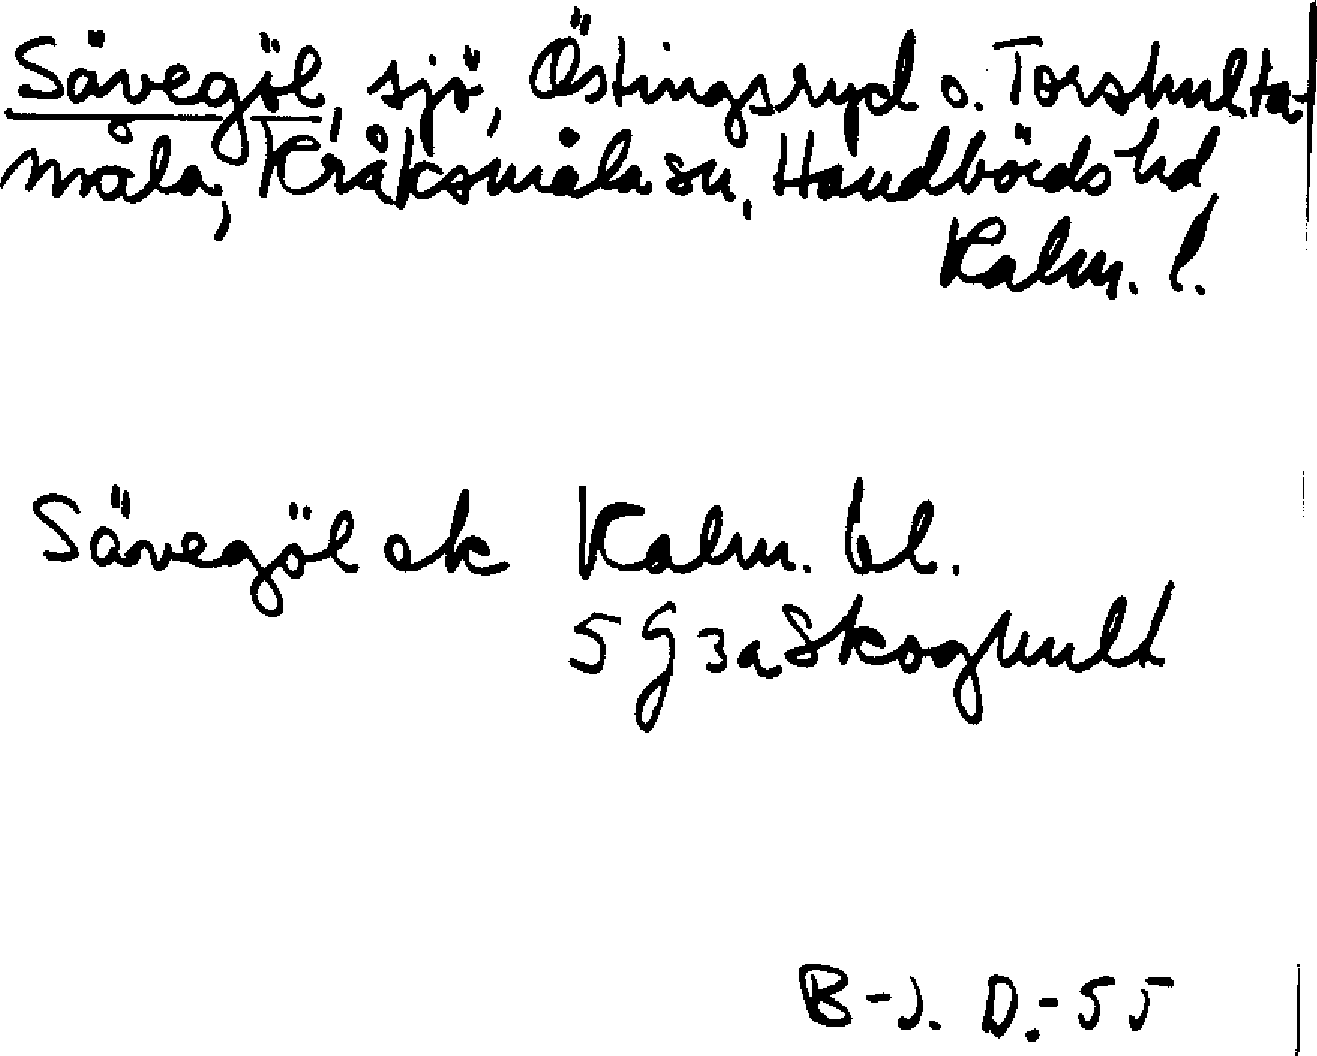 Sävegöl, sjö, Östingsryd o. Torshulta-
måla, Kråksmåla sn, Handbörds hd,
Kalm. l.
Sävegöl ek Kalm. bl.
5 G 3a Skoghult
B-J. D.-55